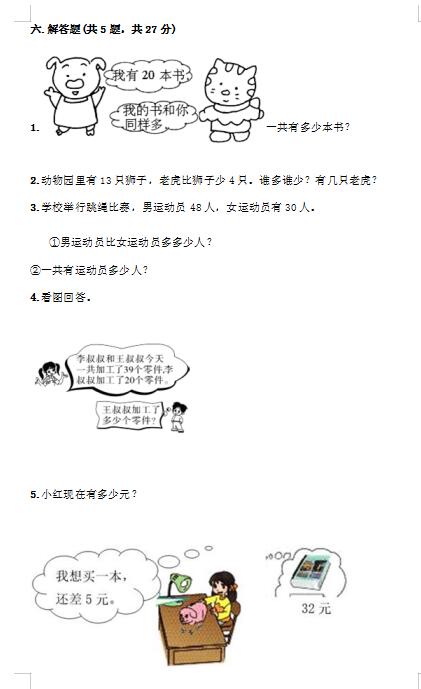 六.解答题(共5题，共27分)
我有20本书
我的书和你
同样多。
1.
一共有多少本书？
2.动物园里有13只狮子，老虎比狮子少4只。谁多谁少？有几只老虎？
3.学校举行跳绳比赛，男运动员48人，女运动员有30人。
①男运动员比女运动员多多少人？
②一共有运动员多少人？
4.看图回答。
李叔叔和王叔叔今天
一共加工了39个零件,李
叔叔加工了20个零件。
王叔叔加工了
多少个零件?
5.小红现在有多少元？
我想买一本，
还差5元。
32元